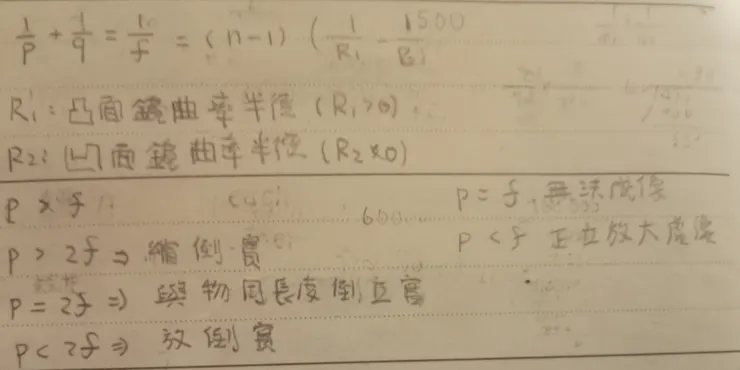 1/p + 1/q = 1/f = (n-1) (1/R₁ - 1/R₂
1500
R₁: 凸面鏡曲率半徑 (R₁>0)
R₂: 凹面鏡曲率半徑 (R₂<0)
p > f
600
p > 2f ⇒ 縮倒實
p = 2f ⇒ 與物同長度倒立實
p < 2f ⇒ 放倒實
p = f 無法成像
p < f 正立放大虛像